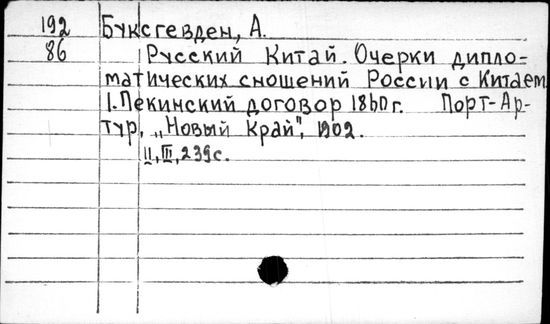 192 Буксгевден, А.
86 Русский Китай. Очерки дипло=
матических сношений России с Китаем
I. Пекинский договор 1860 г. Порт-Ар-
тур, „Новый Край", 1902.
II, III, 239 с.